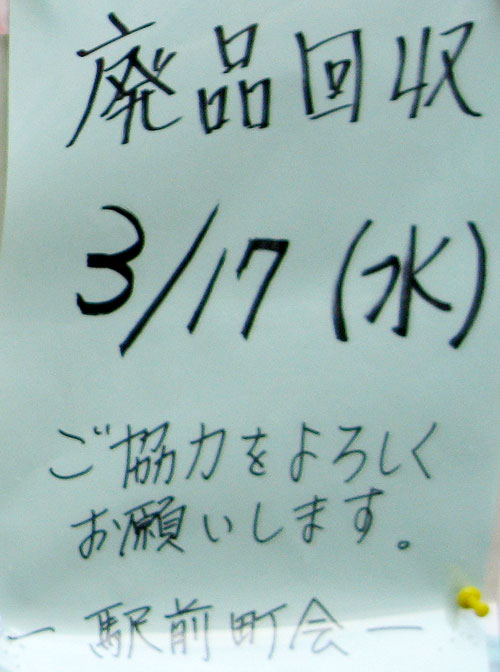 廃品回収
3/17(水)
ご協力をよろしく
お願いします。
ー駅前町会ー